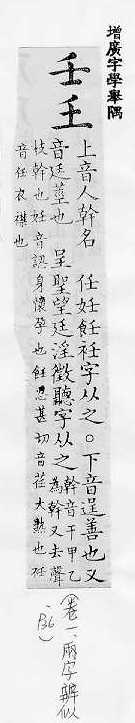 增廣字學舉隅
壬𡈼
上音人幹名　任妊飪衽字从之。下音逞善也又
音廷莖也　呈聖望廷淫徵聽字从之
幹音干甲乙
為幹又去聲
技幹也妊音認身懷孕也飪忍甚切音荏大熟也衽
音任衣襟也
(卷一、兩字辨似
、P36)